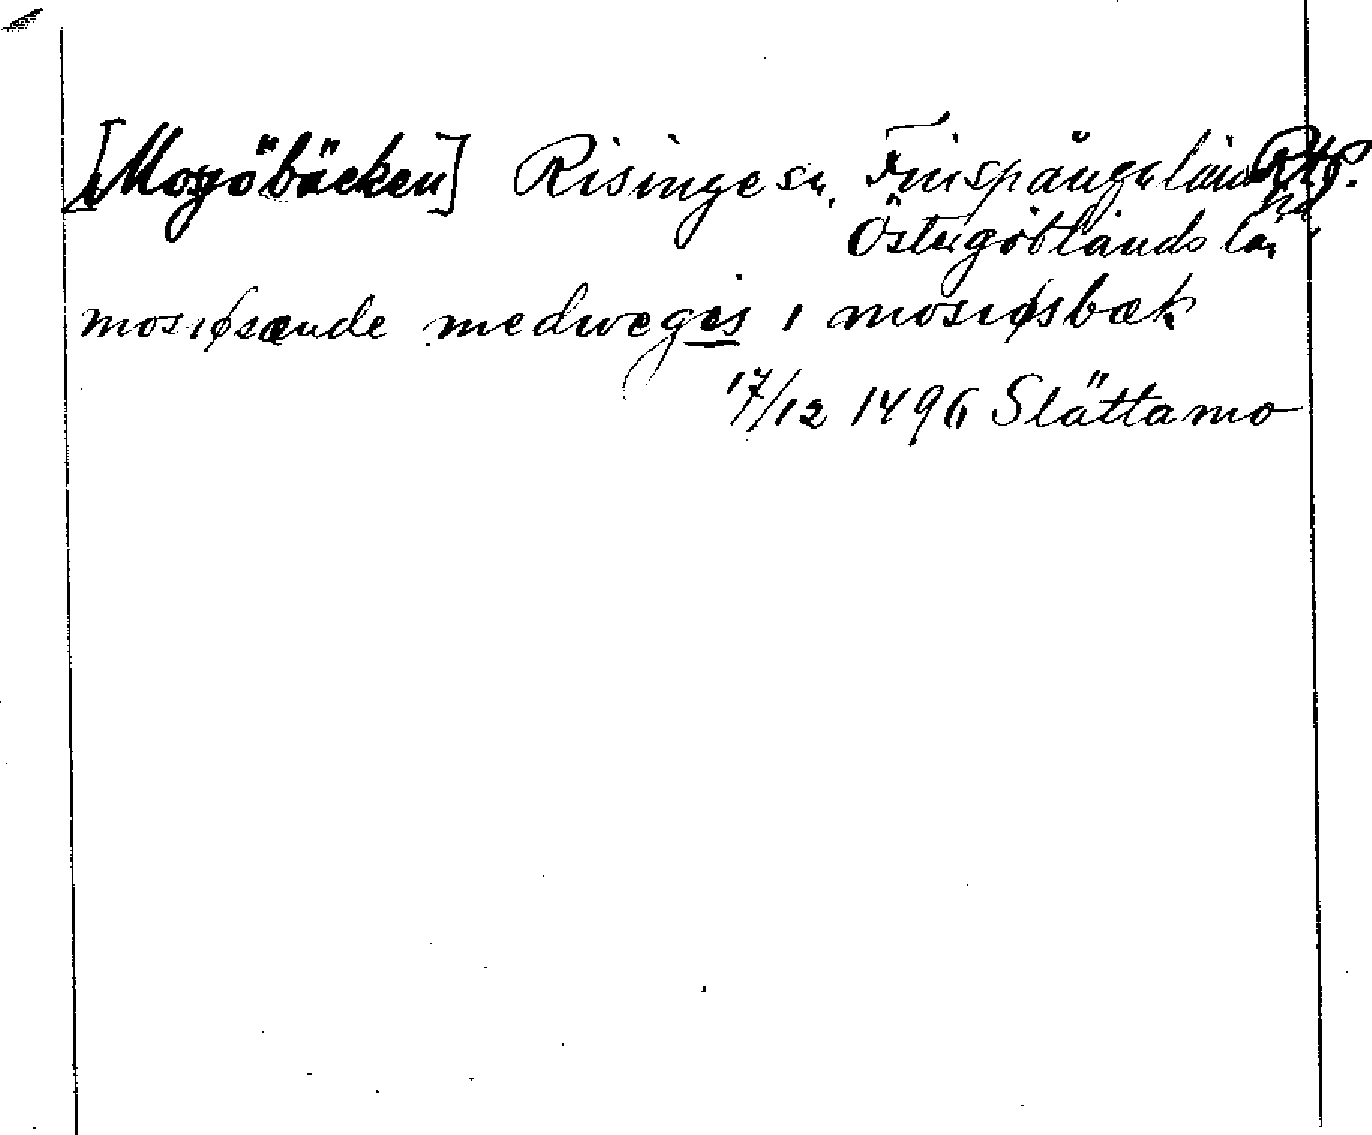 [Mosjöbäcken] Risinge sn, Finspångaläns
hd
Östergötlands län
mosiøsænde medwegis i mosiøsbæk
17/12 1496 Slättamo